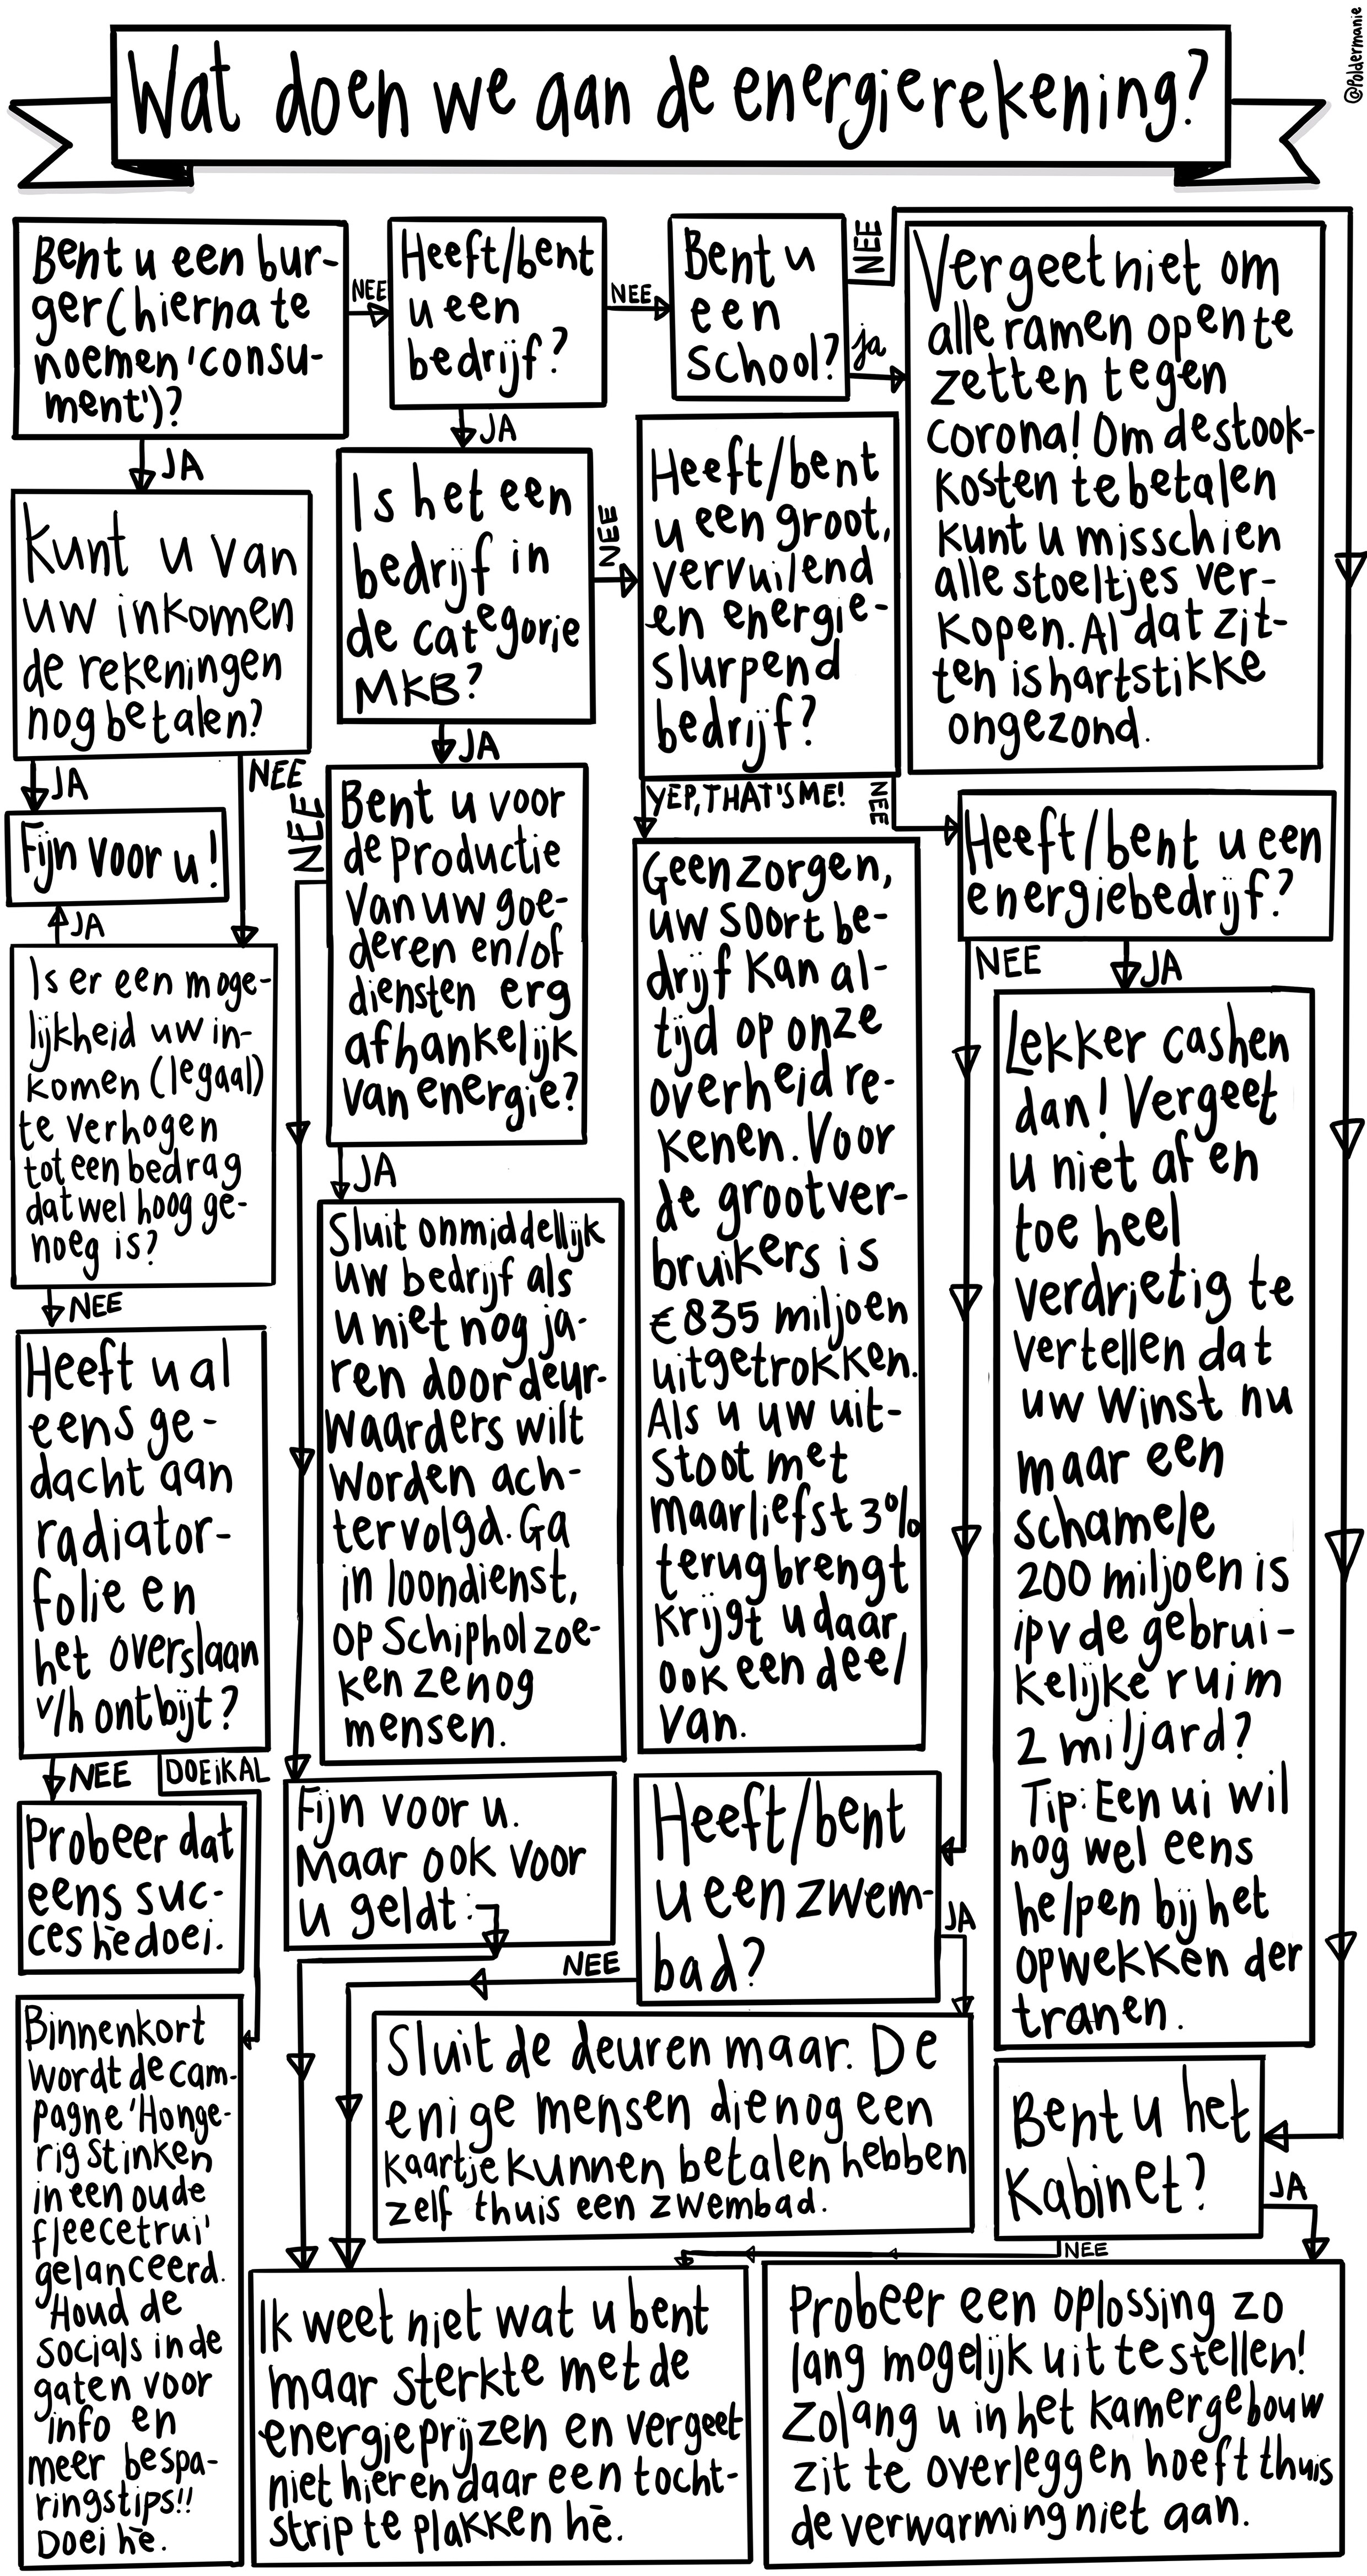 @Poldermanie
Wat doen we aan de energierekening?
Bent u een bur-
ger (hierna te
noemen 'consu-
ment')?
NEE
JA
Heeft/bent
u een
bedrijf?
NEE
JA
Bent u
een
school?
NEE
ja
Vergeet niet om
alle ramen open te
zetten tegen
corona! Om de stook-
kosten te betalen
kunt u misschien
alle stoeltjes ver-
kopen. Al dat zit-
ten is hartstikke
ongezond.
Kunt u van
uw inkomen
de rekeningen
nog betalen?
JA
NEE
Fijn voor u!
JA
Is er een moge-
lijkheid uw in-
komen (legaal)
te verhogen
tot een bedrag
dat wel hoog ge-
noeg is?
NEE
Heeft u al
eens ge-
dacht aan
radiator-
folie en
het overslaan
v/h ontbijt?
NEE
DOE iK AL
Probeer dat
eens suc-
ces hè doei.
Binnenkort
wordt de cam-
pagne 'Honge-
rig stinken
in een oude
fleecetrui'
gelanceerd.
Houd de
socials in de
gaten voor
info en
meer bespa-
ringstips!!
Doei hè.
Is het een
bedrijf in
de categorie
MKB?
NEE
JA
Bent u voor
de productie
van uw goe-
deren en/of
diensten erg
afhankelijk
van energie?
NEE
JA
Sluit onmiddellijk
uw bedrijf als
u niet nog ja-
ren door deur-
waarders wilt
worden ach-
tervolgd. Ga
in loondienst,
op Schiphol zoe-
ken ze nog
mensen.
Fijn voor u.
Maar ook voor
u geldt:
Heeft/bent
u een groot,
vervuilend
en energie-
slurpend
bedrijf?
YEP, THAT'S ME!
NEE
Geen zorgen,
uw soort be-
drijf kan al-
tijd op onze
overheid re-
kenen. Voor
de grootver-
bruikers is
€835 miljoen
uitgetrokken.
Als u uw uit-
stoot met
maarliefst 3%
terugbrengt
krijgt u daar
ook een deel
van.
Heeft/bent u een
energiebedrijf?
NEE
JA
Lekker cashen
dan! Vergeet
u niet af en
toe heel
verdrietig te
vertellen dat
uw winst nu
maar een
schamele
200 miljoen is
ipv de gebrui-
kelijke ruim
2 miljard?
Tip: Een ui wil
nog wel eens
helpen bij het
opwekken der
tranen.
Heeft/bent
u een zwem-
bad?
NEE
JA
Sluit de deuren maar. De
enige mensen die nog een
kaartje kunnen betalen hebben
zelf thuis een zwembad.
Bent u het
kabinet?
JA
NEE
Ik weet niet wat u bent
maar sterkte met de
energieprijzen en vergeet
niet hier en daar een tocht-
strip te plakken hè.
Probeer een oplossing zo
lang mogelijk uit te stellen!
Zolang u in het kamergebouw
zit te overleggen hoeft thuis
de verwarming niet aan.